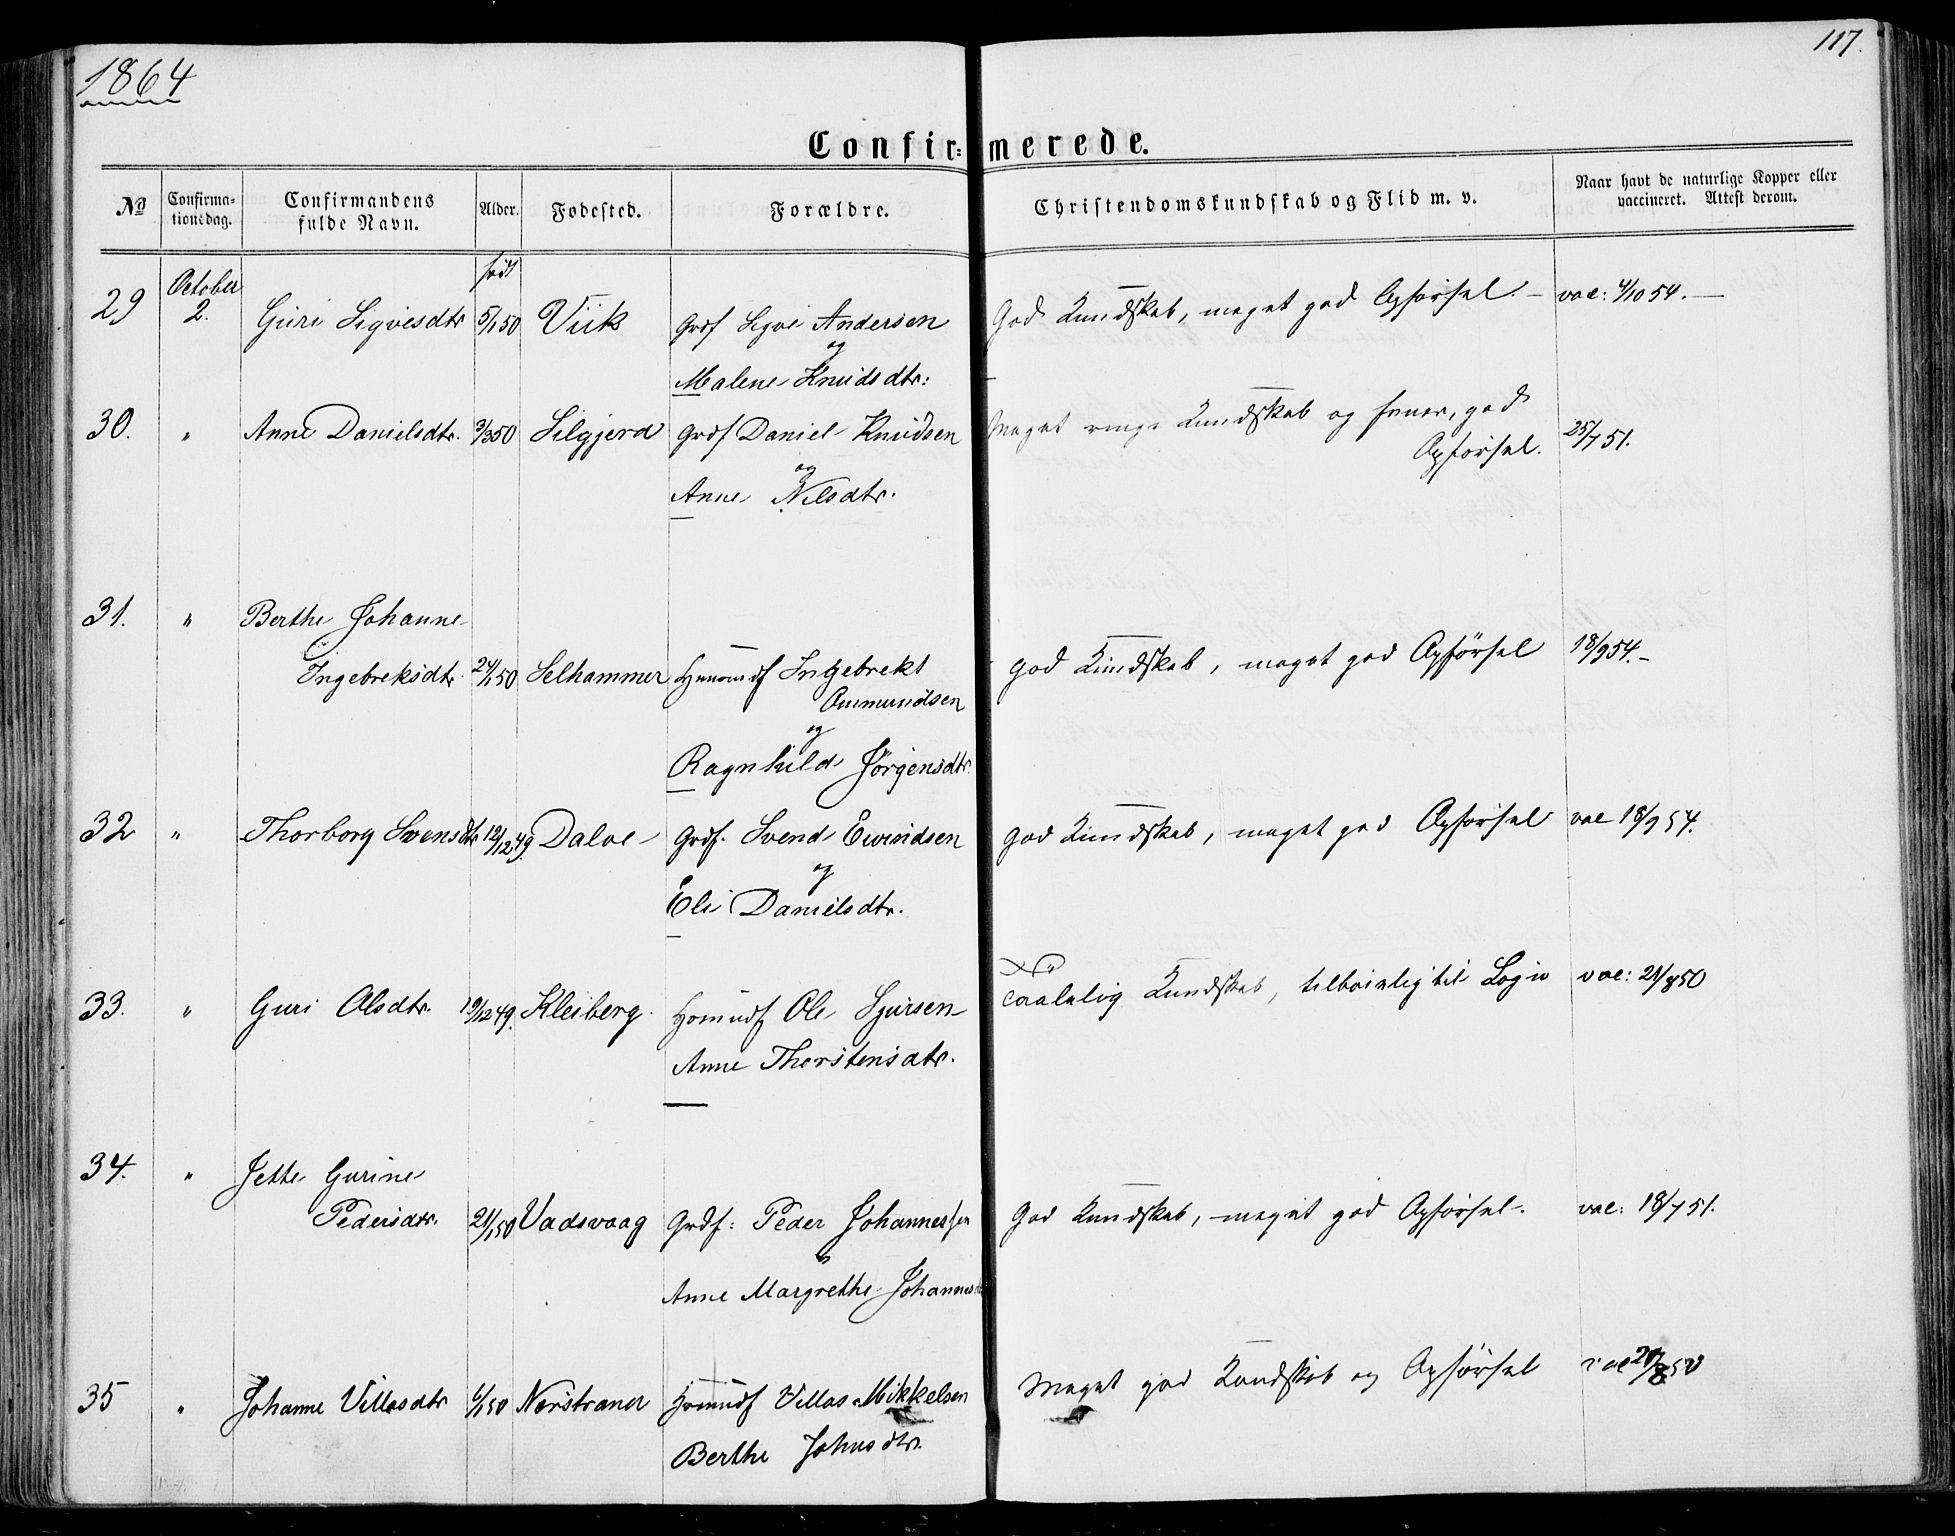 1864
117.
Confir=merede.
No
Confirma-
tionsdag.
Confirmandens
fulde Navn.
Alder.
Fødested.
Forældre.
Christendomskundskab og Flid m. v.
Naar havt de naturlige Kopper eller
vaccineret. Attest derom.
født
29 October 2. Guri Sigvesdtr 5/1 50 Viik Grdf Sigve Andersen God Kundskab, meget god Opførsel. vac: 4/10 54.
og
Malene Knudsdtr:
30. " Anne Danielsdtr. 3/3 50 Silgjerd Grdf Daniel Knudsen Meget ringe Kundskab og god
Opførsel. 25/7 51.
og
Anne Nilsdtr.
31. " Berthe Johanne
Ingebreksdtr. 24/1 50 Selhammer Huusmdf Ingebrekt god Kundskab, meget god Opførsel 18/9 54.
Ommundsen
og
Ragnhild Jørgensdtr.
32 " Thorborg Svensdtr 12/12 49. Dalve Grdf. Svend Ewindsen god Kundskab, meget god Opførsel vac 18/9 54.
og
Eli Danielsdtr.
33. " Guri Olsdtr. 19/12 49. Kleiberg. Huusmdf Ole Sjursen taalelig Kundskab, tilbøielig til Løgn vac: 21/8 50
Anne Thorstensdtr.
34. " Jette Gurine
Pedersdtr. 21/1 50 Vadsvaag Grdf: Peder Johannessen God Kundskab, meget god Opførsel. vac: 18/7 51.
Anne Margrethe Johannes
35 " Johanne Villasdtr 6/1 50 Nærstrand Huusmdf Villas Mikkelsen Meget god Kundskab og Opførsel vac 21/8 50
Berthe Johnsdtr.